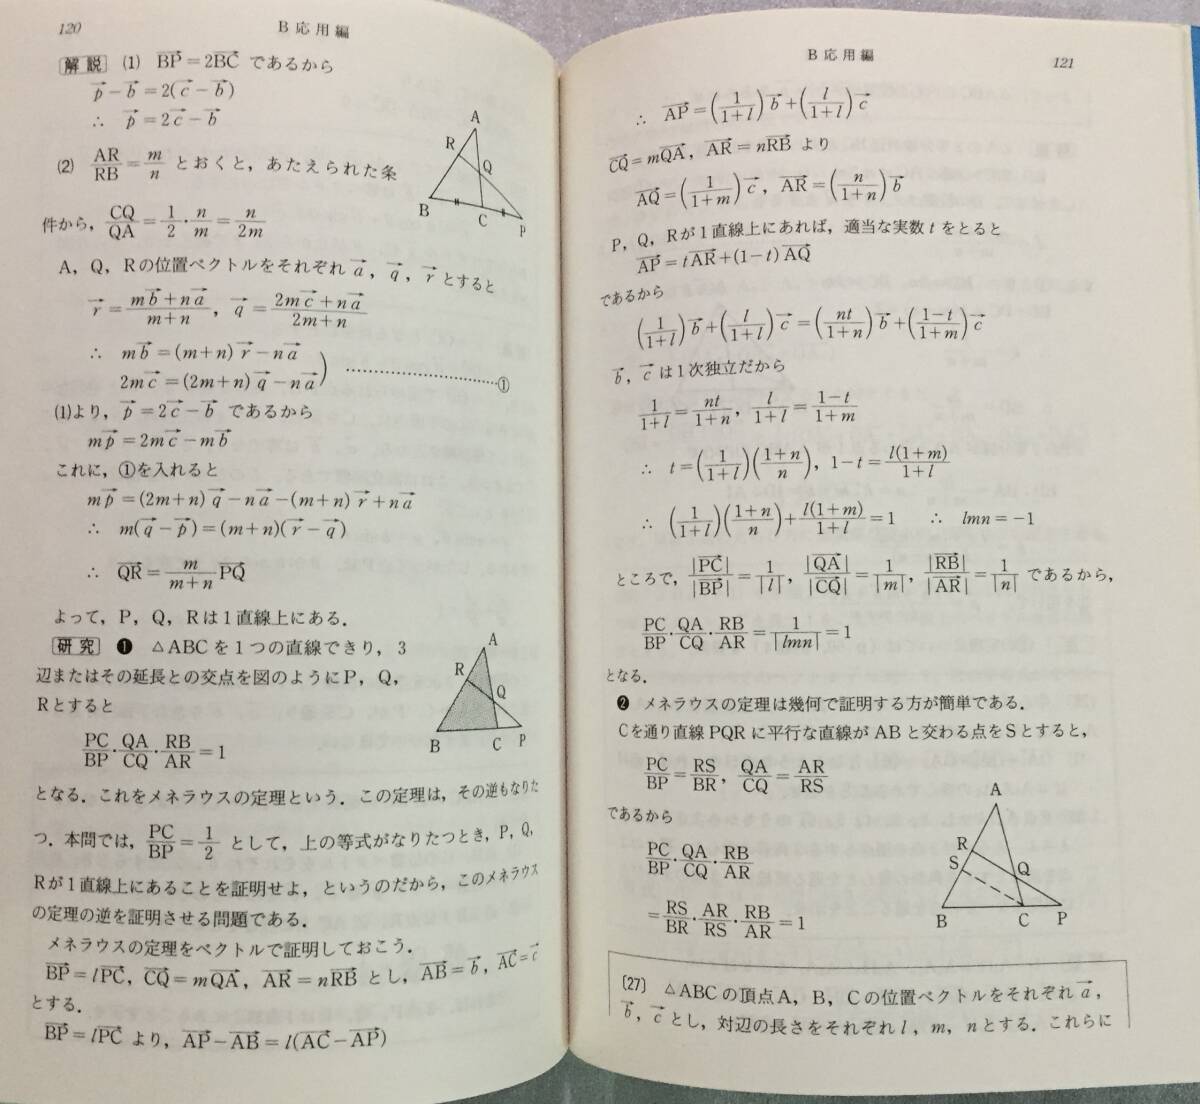 120
B応用編
解説 (1) $\overrightarrow{BP}=2\overrightarrow{BC}$ であるから
$\vec{p}-\vec{b}=2(\vec{c}-\vec{b})$
∴ $\vec{p}=2\vec{c}-\vec{b}$
(2) $\frac{AR}{RB}=\frac{m}{n}$ とおくと，あたえられた条
件から，$\frac{CQ}{QA}=\frac{1}{2}\cdot\frac{n}{m}=\frac{n}{2m}$
A
R
Q
B
C
P
A，Q，Rの位置ベクトルをそれぞれ $\vec{a}$，$\vec{q}$，$\vec{r}$ とすると
$\vec{r}=\frac{m\vec{b}+n\vec{a}}{m+n}$，$\vec{q}=\frac{2m\vec{c}+n\vec{a}}{2m+n}$
∴ $m\vec{b}=(m+n)\vec{r}-n\vec{a}$
$2m\vec{c}=(2m+n)\vec{q}-n\vec{a}$ ) ……………①
(1)より，$\vec{p}=2\vec{c}-\vec{b}$ であるから
$m\vec{p}=2m\vec{c}-m\vec{b}$
これに，①を入れると
$m\vec{p}=(2m+n)\vec{q}-n\vec{a}-(m+n)\vec{r}+n\vec{a}$
∴ $m(\vec{q}-\vec{p})=(m+n)(\vec{r}-\vec{q})$
∴ $\overrightarrow{QR}=\frac{m}{m+n}\overrightarrow{PQ}$
よって，P，Q，Rは1直線上にある．
研究 ❶ △ABCを1つの直線できり，3
辺またはその延長との交点を図のようにP，Q，
Rとすると
$\frac{PC}{BP}\cdot\frac{QA}{CQ}\cdot\frac{RB}{AR}=1$
A
R
Q
B
C
P
となる．これをメネラウスの定理という．この定理は，その逆もなりた
つ．本問では，$\frac{PC}{BP}=\frac{1}{2}$ として，上の等式がなりたつとき，P，Q，
Rが1直線上にあることを証明せよ，というのだから，このメネラウス
の定理の逆を証明させる問題である．
メネラウスの定理をベクトルで証明しておこう．
$\overrightarrow{BP}=l\overrightarrow{PC}$，$\overrightarrow{CQ}=m\overrightarrow{QA}$，$\overrightarrow{AR}=n\overrightarrow{RB}$ とし，$\overrightarrow{AB}=\vec{b}$，$\overrightarrow{AC}=\vec{c}$
とする．
$\overrightarrow{BP}=l\overrightarrow{PC}$ より，$\overrightarrow{AP}-\overrightarrow{AB}=l(\overrightarrow{AC}-\overrightarrow{AP})$
B応用編
121
∴ $\overrightarrow{AP}=\left(\frac{1}{1+l}\right)\vec{b}+\left(\frac{l}{1+l}\right)\vec{c}$
$\overrightarrow{CQ}=m\overrightarrow{QA}$，$\overrightarrow{AR}=n\overrightarrow{RB}$ より
$\overrightarrow{AQ}=\left(\frac{1}{1+m}\right)\vec{c}$，$\overrightarrow{AR}=\left(\frac{n}{1+n}\right)\vec{b}$
P，Q，Rが1直線上にあれば，適当な実数 t をとると
$\overrightarrow{AP}=t\overrightarrow{AR}+(1-t)\overrightarrow{AQ}$
であるから
$\left(\frac{1}{1+l}\right)\vec{b}+\left(\frac{l}{1+l}\right)\vec{c}=\left(\frac{nt}{1+n}\right)\vec{b}+\left(\frac{1-t}{1+m}\right)\vec{c}$
$\vec{b}$，$\vec{c}$ は1次独立だから
$\frac{1}{1+l}=\frac{nt}{1+n}$，$\frac{l}{1+l}=\frac{1-t}{1+m}$
∴ $t=\left(\frac{1}{1+l}\right)\left(\frac{1+n}{n}\right)$，$1-t=\frac{l(1+m)}{1+l}$
∴ $\left(\frac{1}{1+l}\right)\left(\frac{1+n}{n}\right)+\frac{l(1+m)}{1+l}=1$ ∴ $lmn=-1$
ところで，$\frac{|\overrightarrow{PC}|}{|\overrightarrow{BP}|}=\frac{1}{|l|}$，$\frac{|\overrightarrow{QA}|}{|\overrightarrow{CQ}|}=\frac{1}{|m|}$，$\frac{|\overrightarrow{RB}|}{|\overrightarrow{AR}|}=\frac{1}{|n|}$ であるから，
$\frac{PC}{BP}\cdot\frac{QA}{CQ}\cdot\frac{RB}{AR}=\frac{1}{|lmn|}=1$
となる．
❷ メネラウスの定理は幾何で証明する方が簡単である．
Cを通り直線PQRに平行な直線がABと交わる点をSとすると，
$\frac{PC}{BP}=\frac{RS}{BR}$，$\frac{QA}{CQ}=\frac{AR}{RS}$
であるから
$\frac{PC}{BP}\cdot\frac{QA}{CQ}\cdot\frac{RB}{AR}$
$=\frac{RS}{BR}\cdot\frac{AR}{RS}\cdot\frac{RB}{AR}=1$
A
R
S
Q
B
C
P
(27) △ABCの頂点A，B，Cの位置ベクトルをそれぞれ $\vec{a}$，
$\vec{b}$，$\vec{c}$ とし，対辺の長さをそれぞれ l，m，n とする．これらに